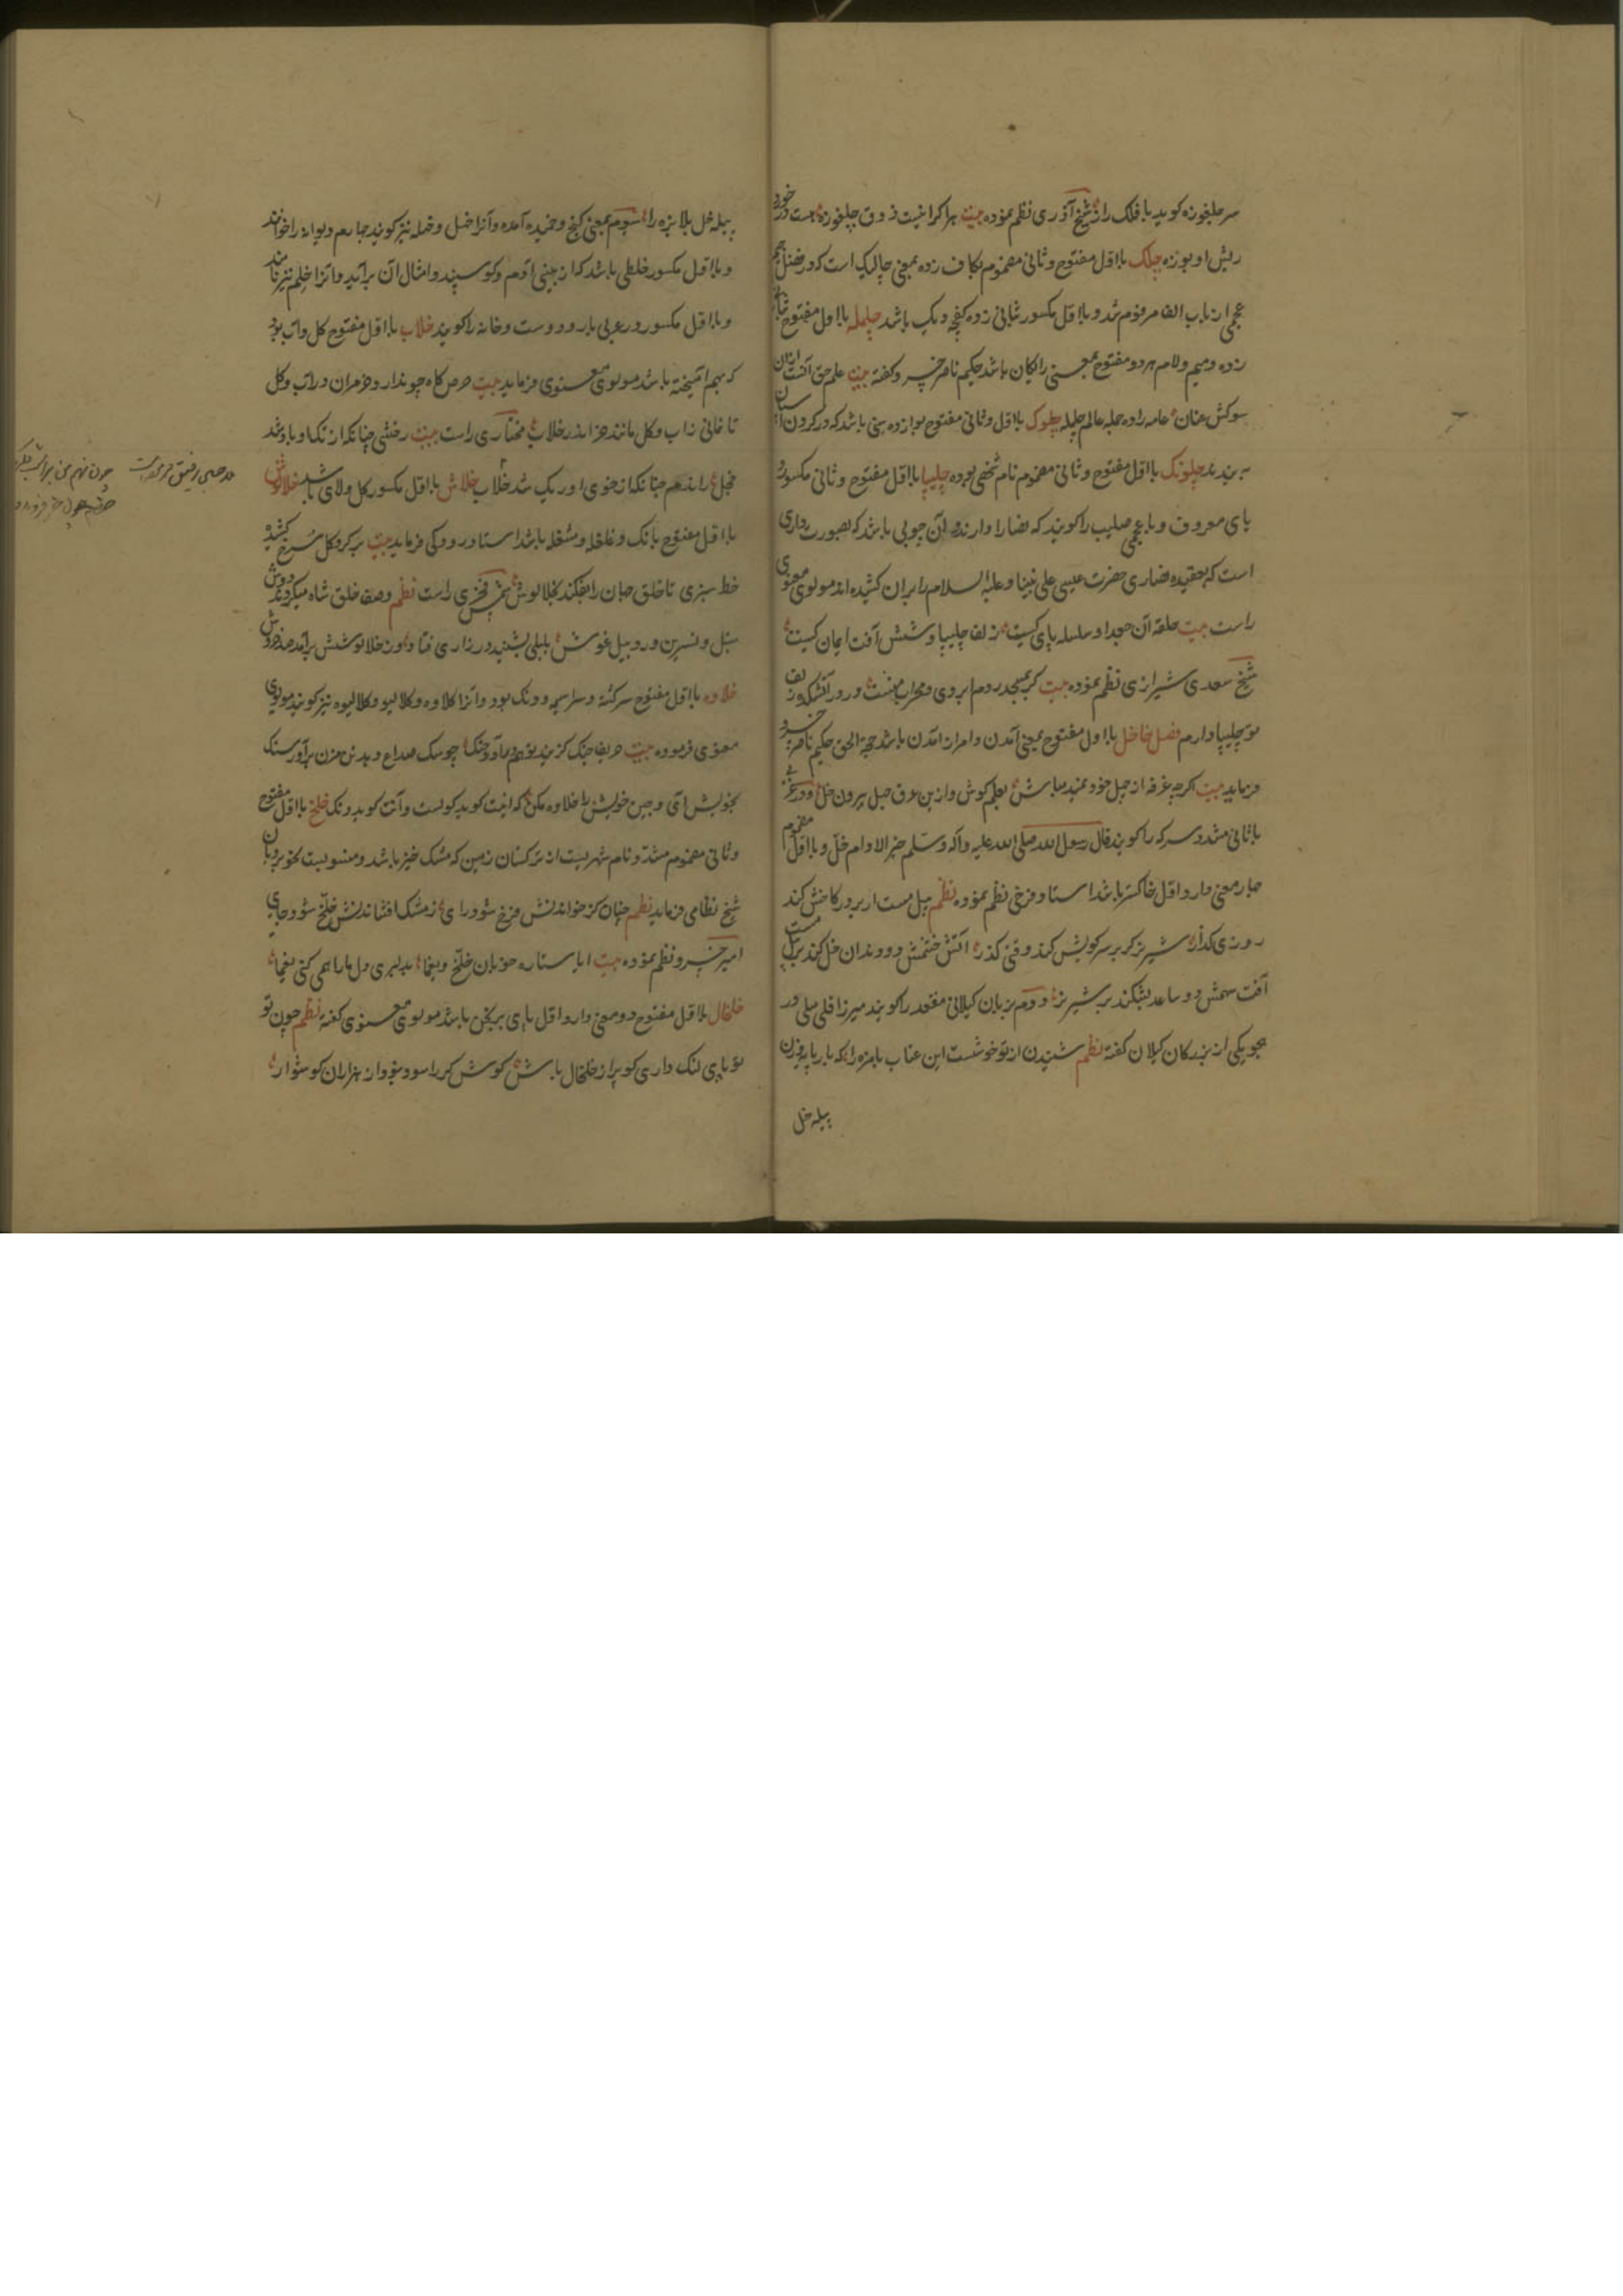 سر چلغوزه کوید با فلک راز شیخ آذری نظم نموده بیت هر اکرانیست ذوق چلغوزه هست در خورد
ریش او بوزه چلک با اول مفتوح وثانی مضموم بکاف زده بمعنی چالیک است که در فصل جیم
عجمی از باب الف مرقوم شد و با اول مکسور بثانی زده کفچه دیک باشد چلمله با اول مفتوح بثانی
زده ومیم ولام هر دو مفتوح بمعنی رایکان باشد حکیم ناصر خسرو کفته بیت علم حق آنست ازان
سوکش عنان عامه را ده جمله عالم چلمله چلوک با اول وثانی مفتوح بواو زده
بندند چلونک با اول مفتوح وثانی مضموم نام شخصی بوده چلیپا با اول مفتوح وثانی مکسور و
یای معروف و با عجمی صلیب را کویند که نصارا دارند و آن چوبی باشد که بصورت داری
است که بعقیده نصاری حضرت عیسی علی نبینا وعلیه السلام را بران کشیده اند مولوی معنوی
راست بیت حلقه آن جعد او سلسله پای کیست زلف چلیپا وشش آفت ایمان کیست
شیخ سعدی شیرازی نظم نموده بیت کر بمسجد روم ابروی و محراب منست ور در آتشکده زلف
تو چلیپا دارم فصل خا خل با اول مفتوح بمعنی آمدن وامر از آمدن باشد حجة الحق حکیم ناصر خسرو
فرماید بیت اکرچه غرقه از جهل خود نمید مباش بعلم کوش وازین غرق جهل بیرون خل و در عربی
با ثانی مشدد سرکه را کویند قال رسول الله صلی الله علیه وآله وسلم خیر الادام خل و با اول مضموم
چهار معنی دارد اول خاکستر باشد استاد فرخی نظم نموده نظم پیل مست ار بر در کاخش کند
روزی کذار شیر نر کر بر سر کویش کند وقتی کذر آتش خشمش دو دندان خل کند بر پیل مست
آفت سهمش دو ساعد بشکند بر شیر نر دوم بزبان کیلانی مقعد را کویند میرزا قلی میلی در
هجو یکی از بزرکان کیلان کفته نظم شنیدن از تو خوشست این عتاب با مزه را که بار
پیله خل
پیله خل بلا بزه را سیوم بمعنی کج وخمیده آمده وآنرا خهل وخهله نیز کویند چهارم دیوانه را خوانند
و با اول مکسور خلطی باشد که از بینی آدم وکوسپند وامثال آن برآید وآنرا خلم نیز نامند
و با اول مکسور در عربی یار ودوست وخانه را کویند خلاب با اول مفتوح کل وآب بود
که بهم آمیخته باشد مولوی معنوی فرماید بیت حرص کاه جو ندارد وخرمران در آب وکل
تا نمانی زآب وکل مانند خر اندر خلاب مختاری راست بیت رخشی چنانکه از تک او باد شد
خجل راندم چنانکه از خوی او ریک شد خلاب خلاش با اول مکسور کل ولای باشد خلالوش
با اول مفتوح بانک وغلغله ومشغله باشد استاد رودکی فرماید بیت برکرد کل سرخ کشید
خط سبزی تا خلق جهان را بفکند بخلالوش شمس فخری راست نظم وصف خلق شاه میکردند دوش
سنبل ونسرین وورد وپیل غوش بلبلی بشنید در زاری فتاد وز خلالوشش برآمد صد خروش
خلاوه با اول مفتوح سرکشته وسراسیمه ودنک بود وآنرا کلاوه وکالیو وکالیوه نیز کویند مولوی
معنوی فرموده بیت حریف جنک کزیند تو هم درآ در جنک چو سک صداع دهد تن مزن برآور سنک
بخویش آی وچین خویش را خلاوه مکن که اینت کوید کولست وآنت کوید دنک خلخ با اول مفتوح
وثانی مضموم مشدد نام شهریست از ترکستان زمین که مشک خیز باشد ومنسوبست بخوبرویان
شیخ نظامی فرماید نظم چنان کز خواندنش فرخ شود رای ز مشک افشاندنش خلخ شود جای
امیر خسرو نظم نموده بیت ایا ستاره خوبان خلخ ویغما بدلبری دل ما را همی کنی یغما
خلخال با اول مفتوح دو معنی دارد اول پای برنجن باشد مولوی معنوی کفته نظم چون تو
تو پای لنک داری کو پر از خلخال باش کوش کر را سود نبود از هزاران کوشوار